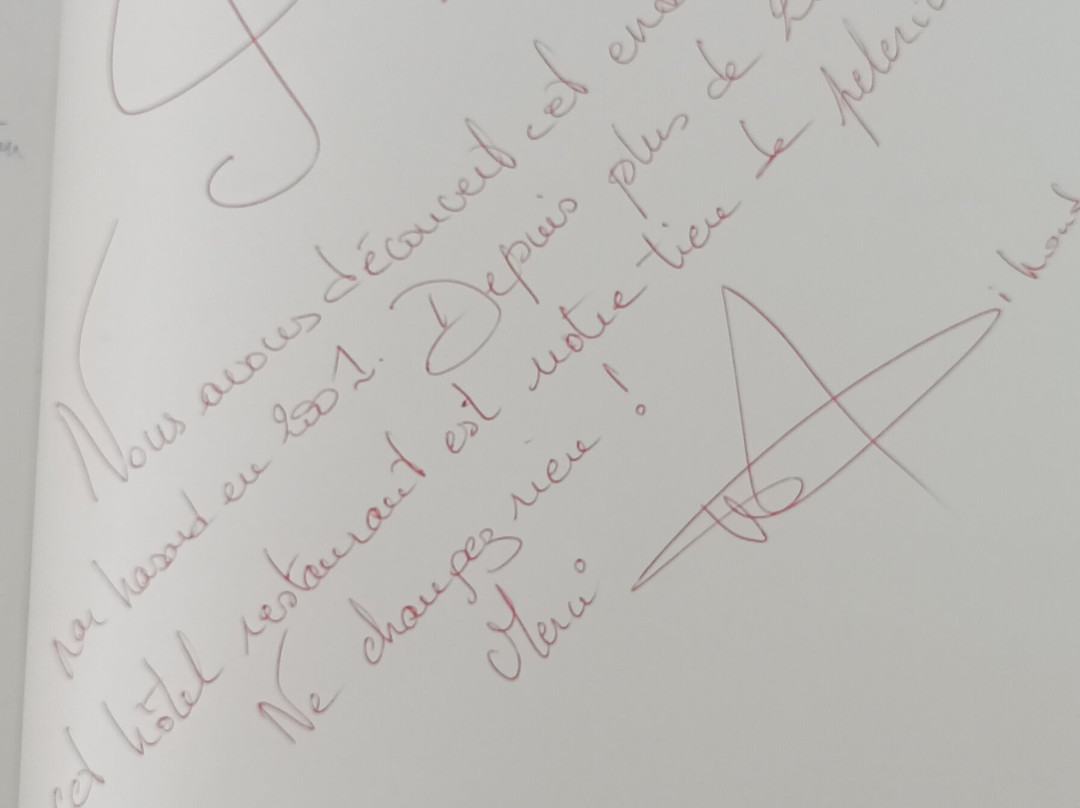 Nous avons découvert cet
par hasard en 2001. Depuis plus de
cet hôtel restaurant est notre lieu de
Ne changez rien !
Merci